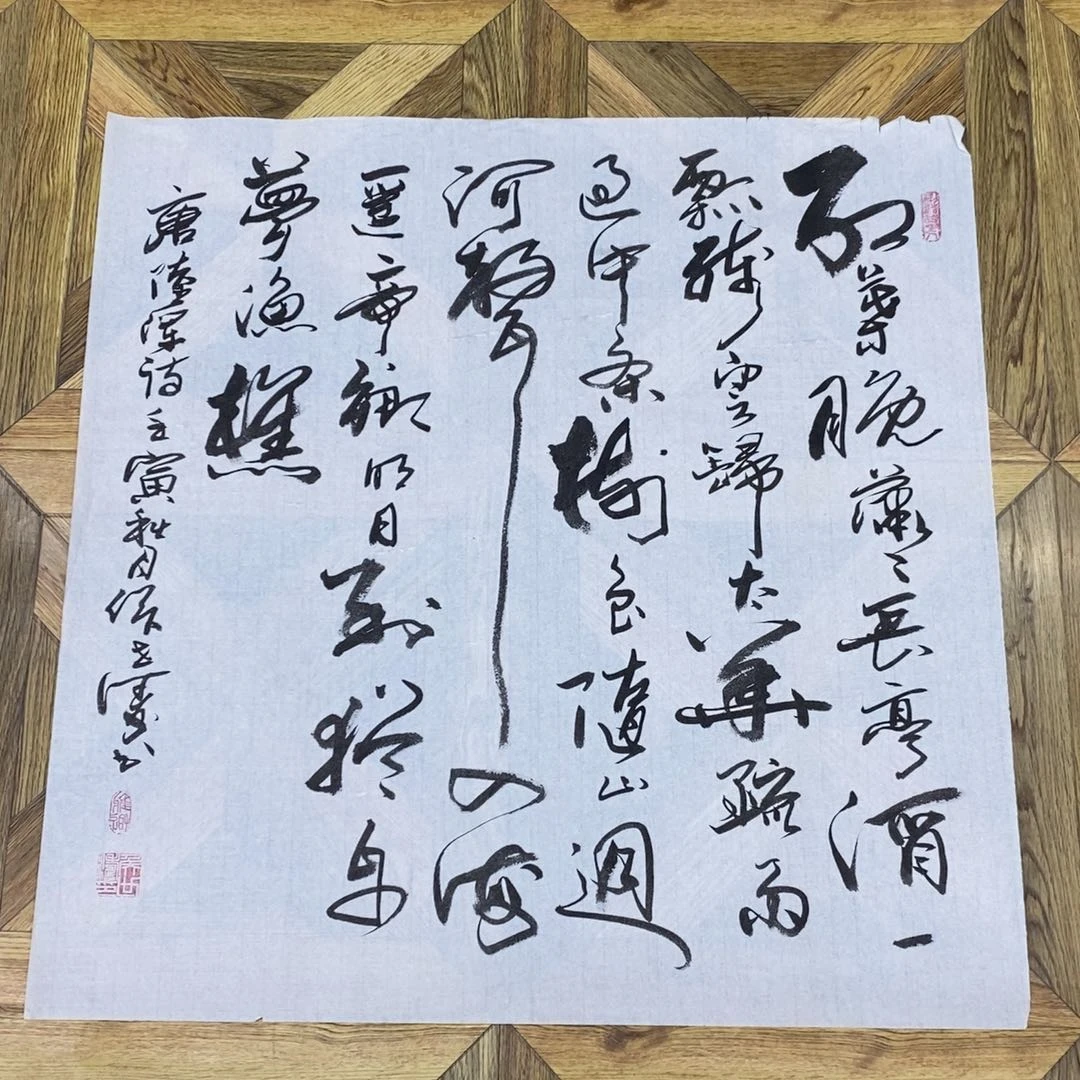 紅葉晚蕭々長亭酒一
瓢殘雲歸太華疏雨
過中条樹色隨山迥
河聲入海
遥帝鄉明日到猶自
夢漁樵
唐詩壬寅秋月書